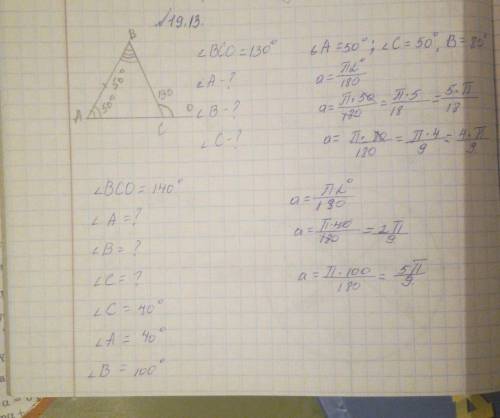 №19.13.
B
50°
50°
130
A
C
O
∠BCO = 130°
∠A - ?
∠B - ?
∠C - ?
∠A = 50°; ∠C = 50°, B = 80°
a = πα°/180
a = π·50/180 = π·5/18 = 5·π/18
a = π·80/180 = π·4/9 = 4·π/9
∠BCO = 140°
∠A = ?
∠B = ?
∠C = ?
∠C = 40°
∠A = 40°
∠B = 100°
a = πα°/180
a = π·40/180 = 2π/9
a = π·100/180 = 5π/9